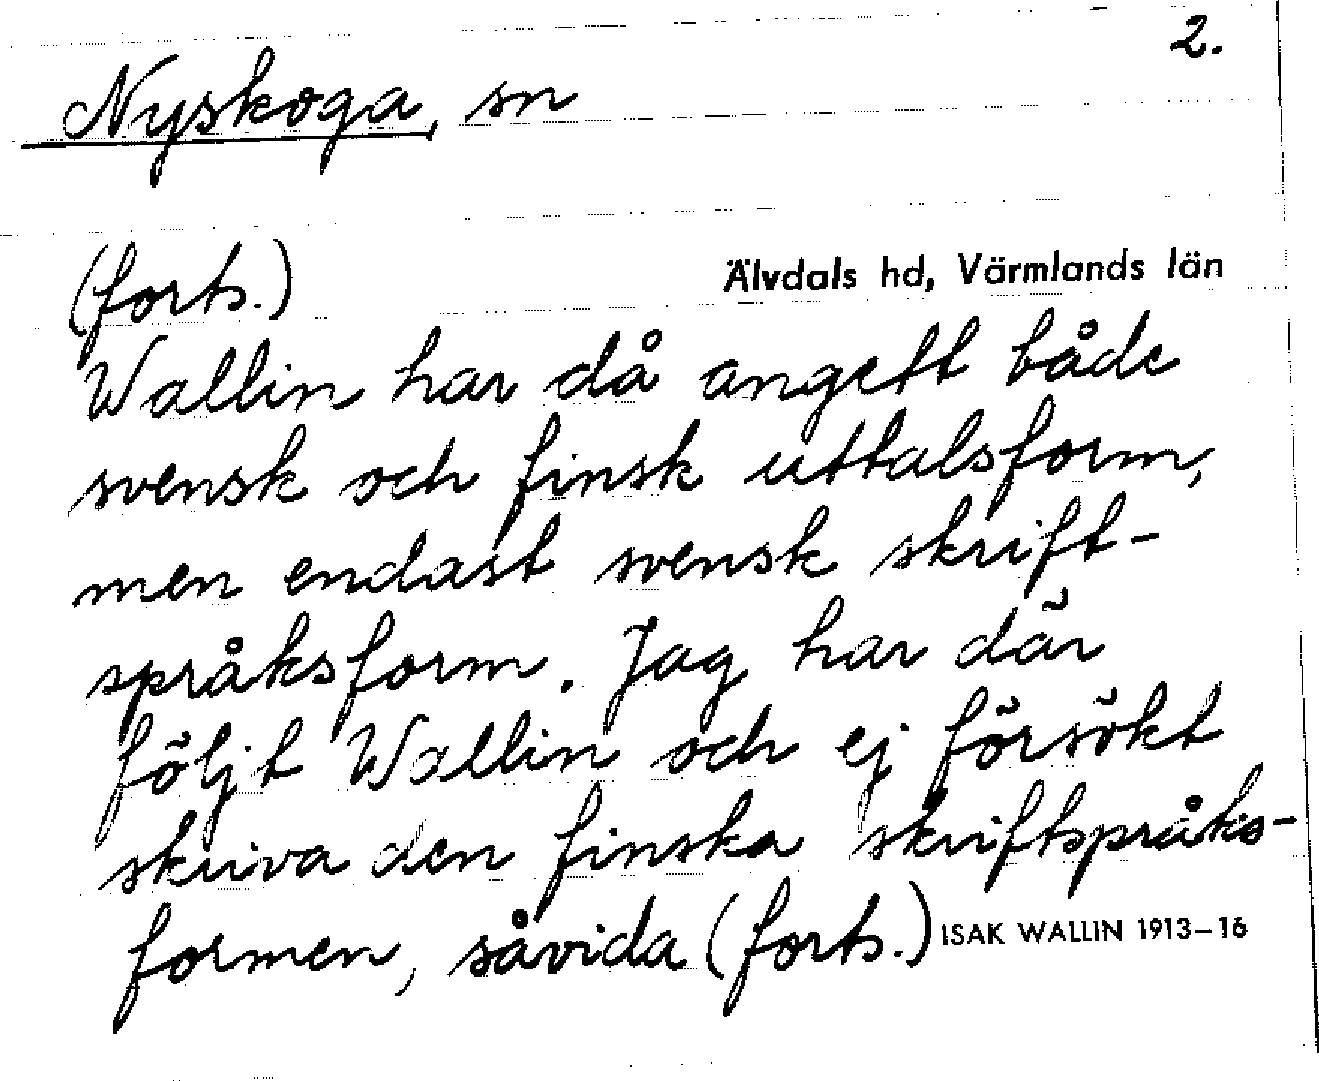 2.
Nyskoga, sn
(forts.)
Älvdals hd, Värmlands län
Wallin har då angett både
svensk och finsk uttalsform,
men endast svensk skrift-
språksform. Jag har där
följt Wallin och ej försökt
skriva den finska skriftspråks-
formen, såvida (forts.)
ISAK WALLIN 1913–16